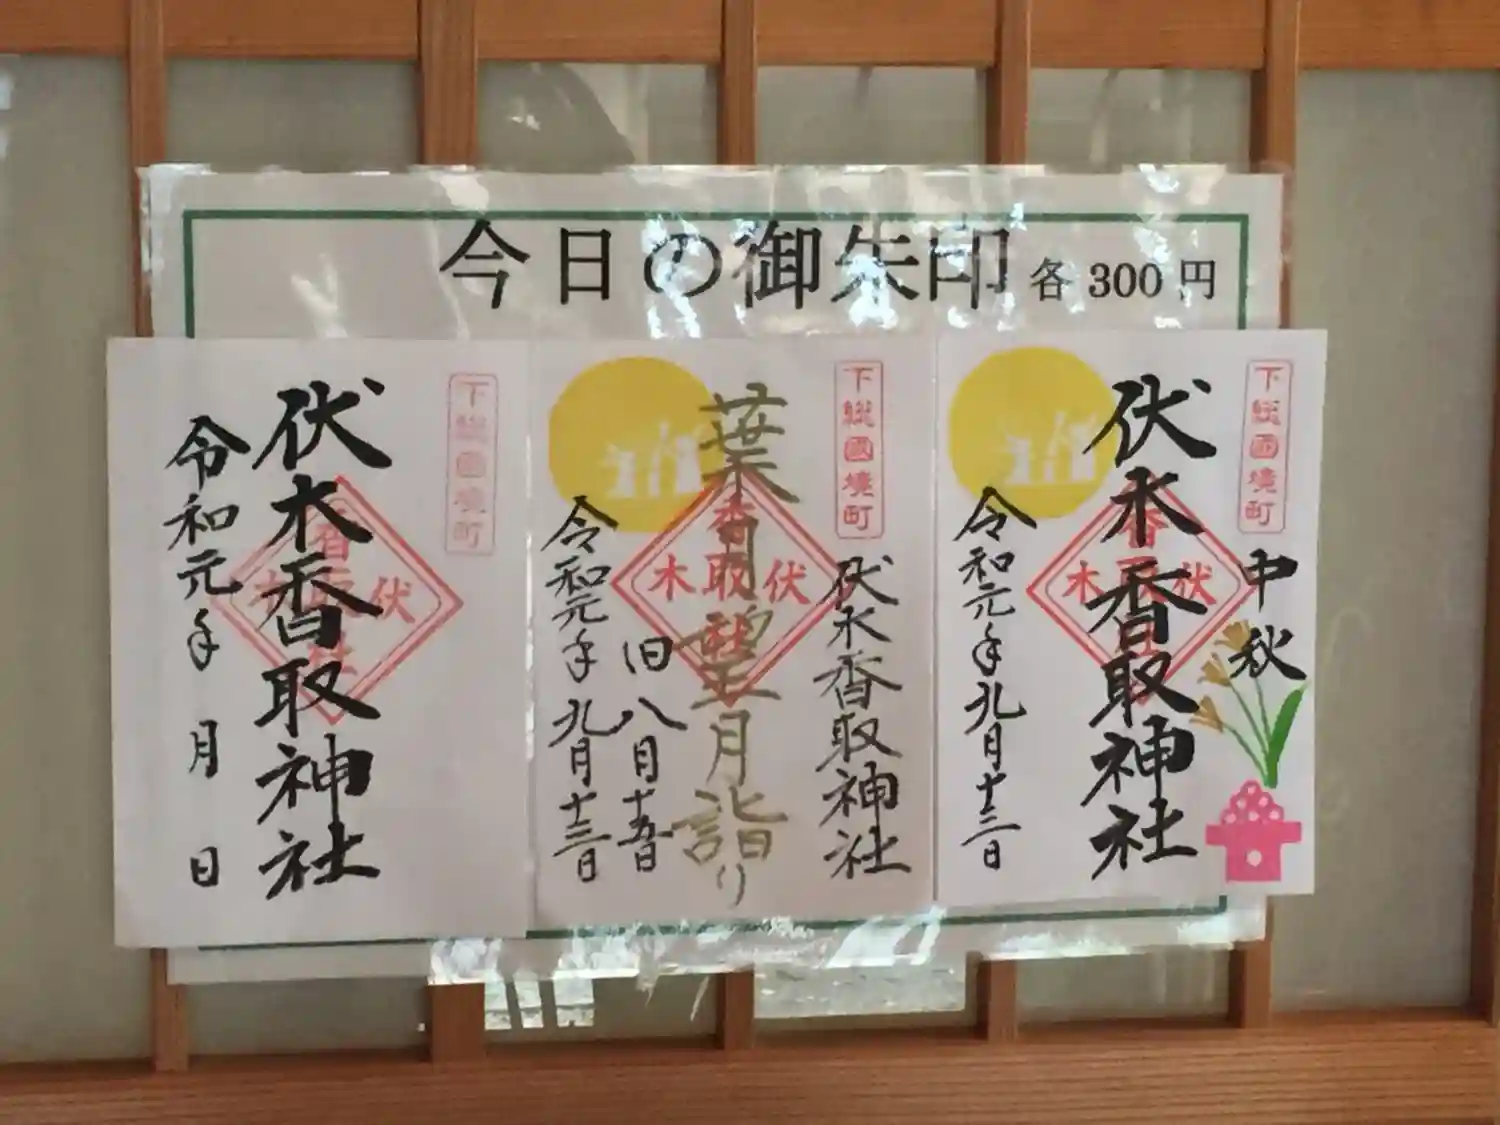 今日の御朱印 各300円
下総國境町
中秋
伏木香取神社
香取
伏木
社
令和元年九月十三日
下総國境町
伏木香取神社
葉月望月詣り
香取
伏木
社
旧八月十五日
令和元年九月十三日
下総國境町
伏木香取神社
伏木
香取
社
令和元年 月 日